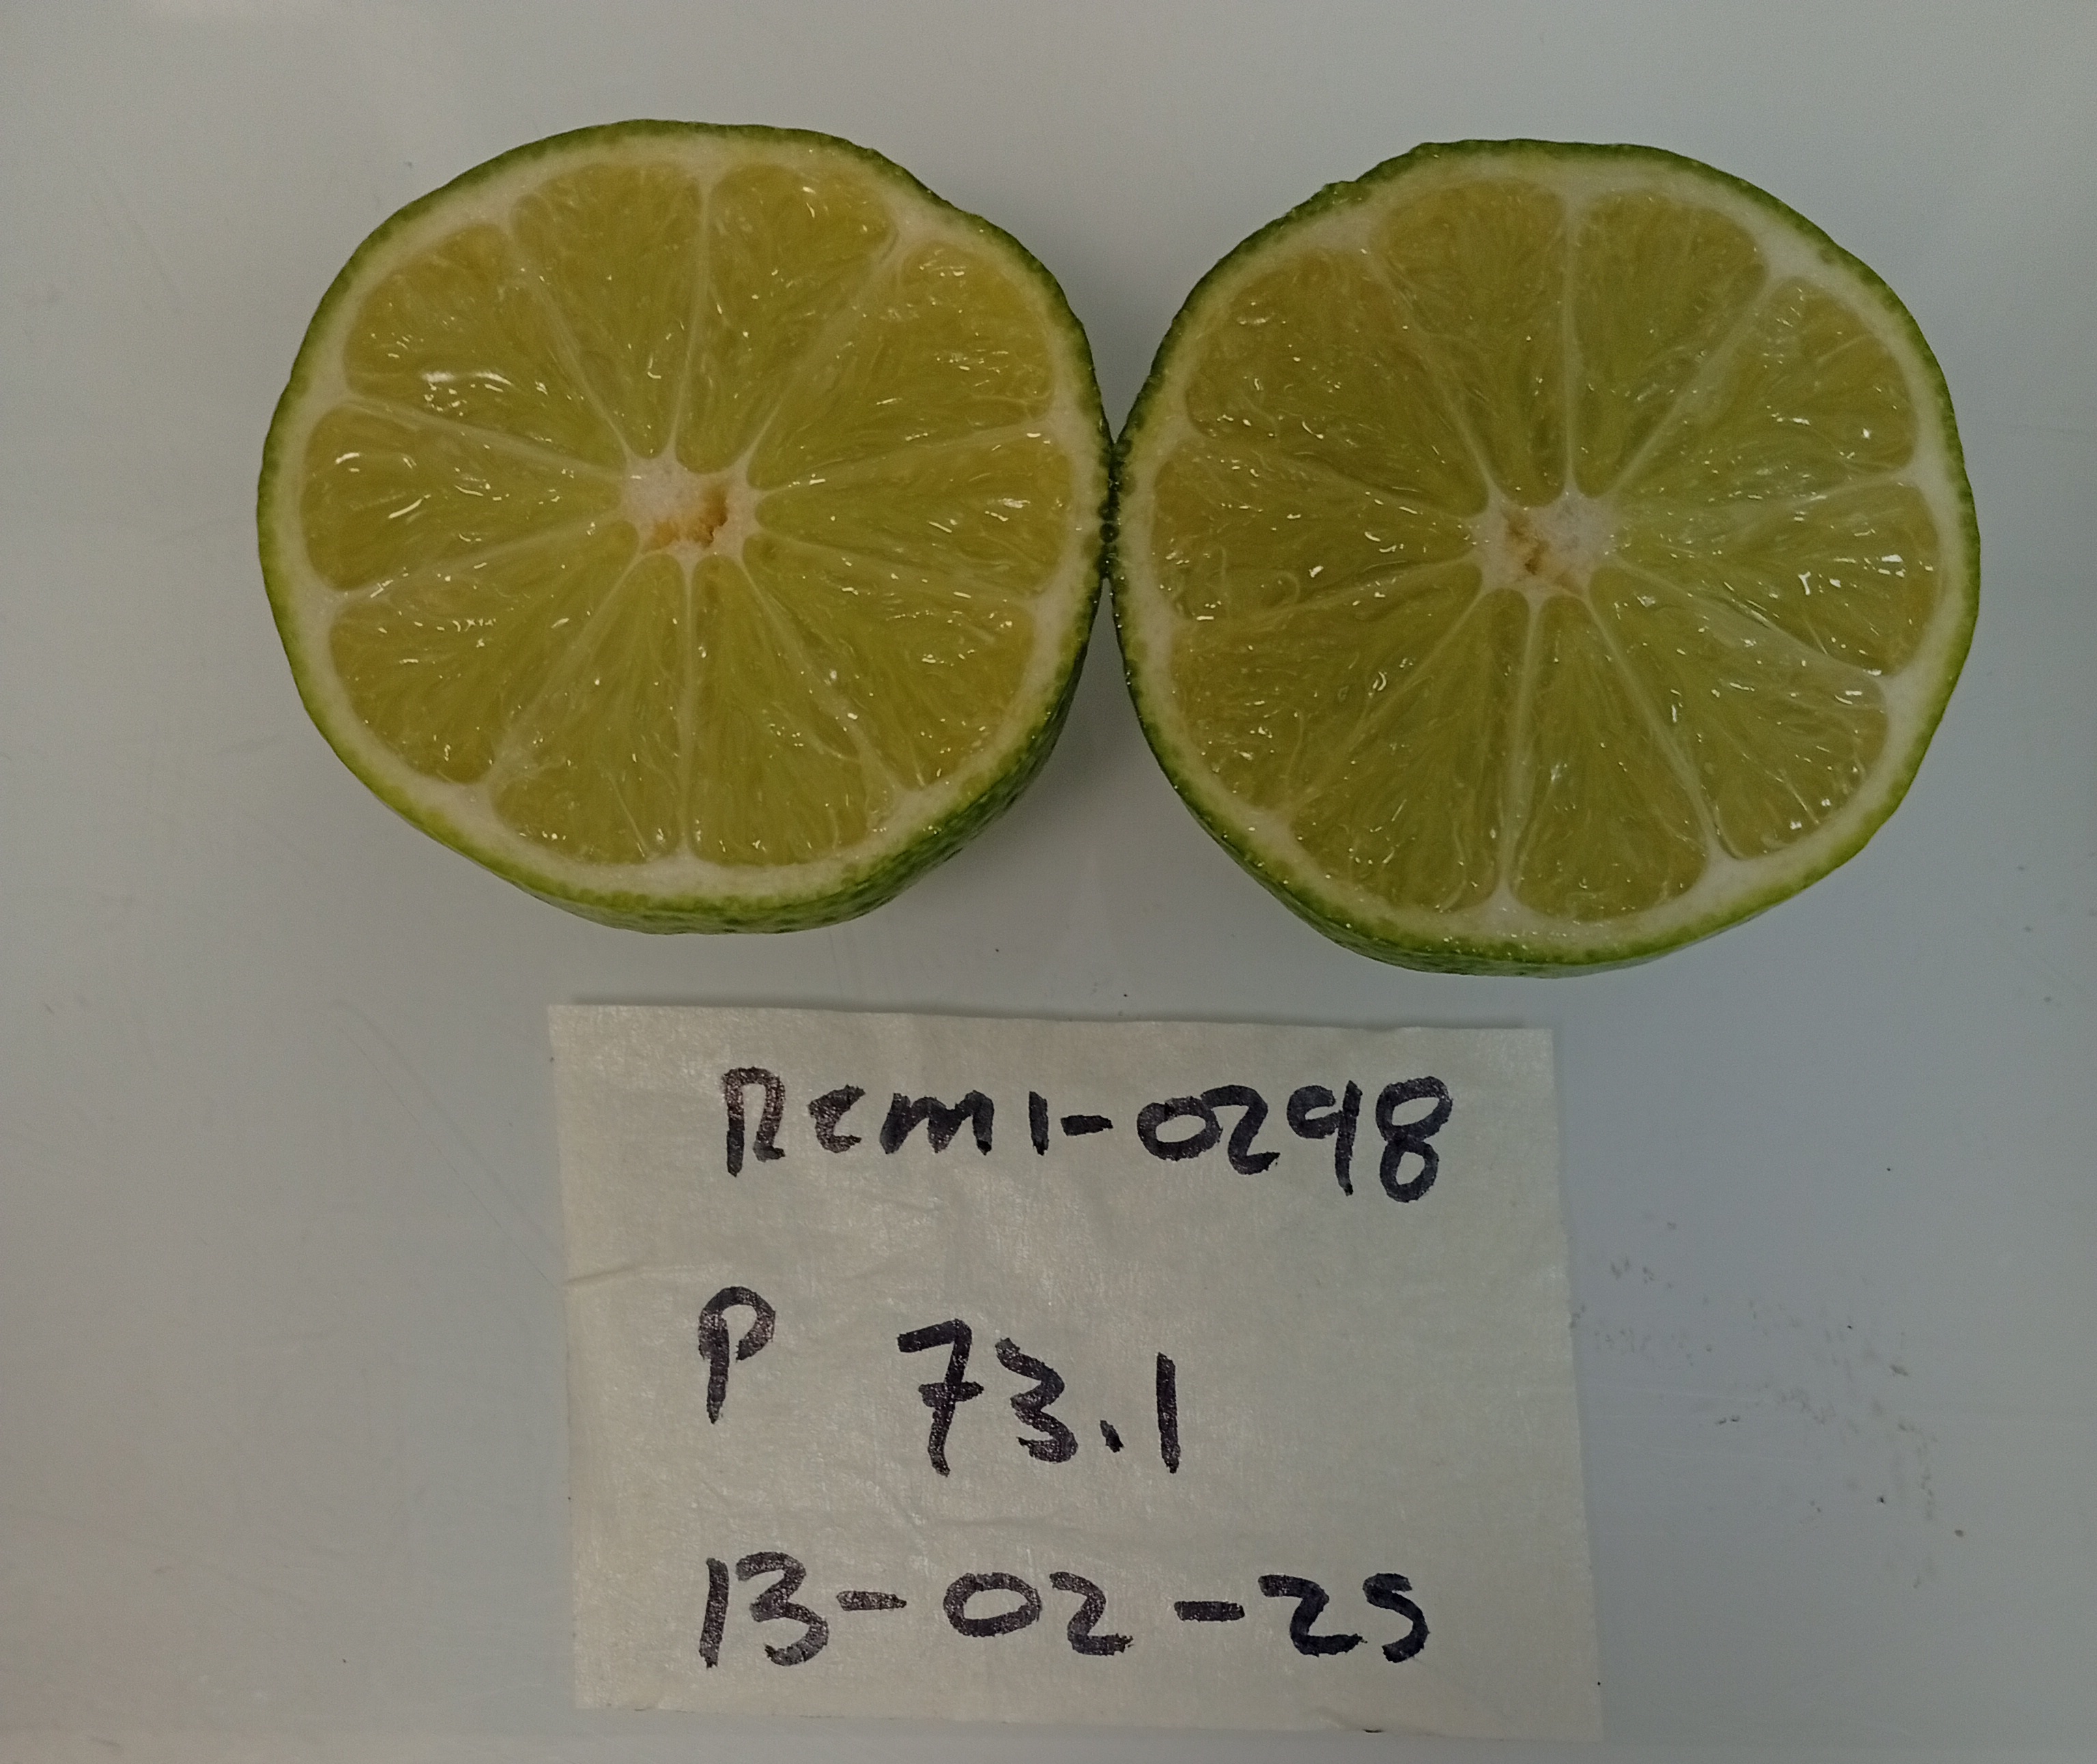 Rcm1-0298
P 73.1
13-02-25